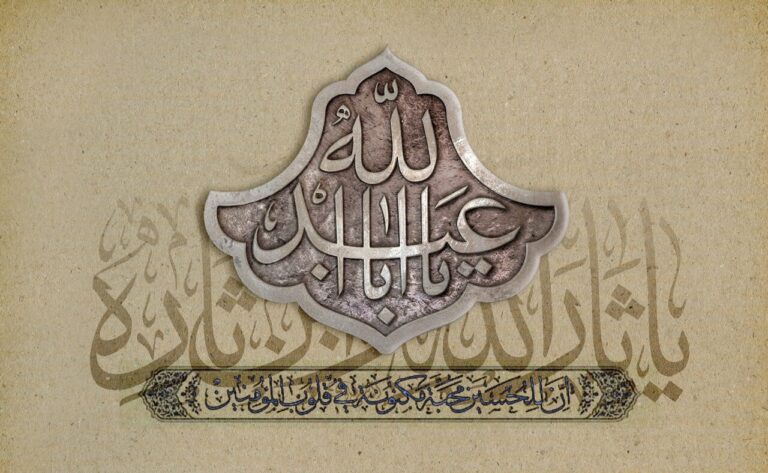 یا ابا عبد الله
یا ثارَ اللهِ وَ ابنَ ثارِهِ
ان للحسین محبة مکنونة في قلوب المؤمنین